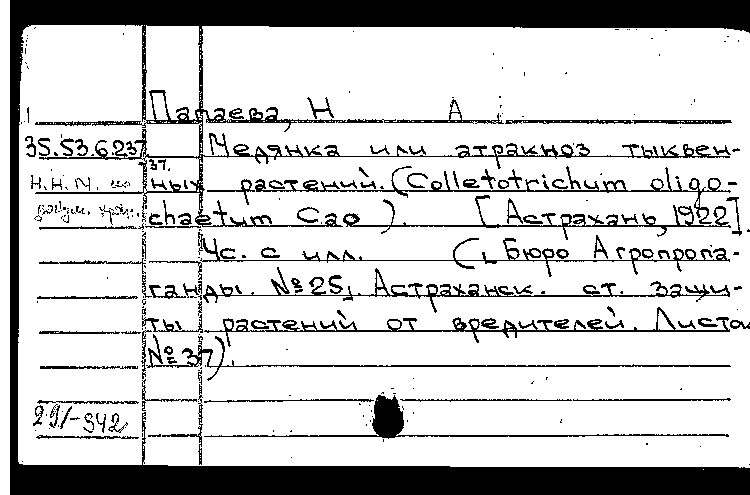 Папаева, Н А
35.53.6.237 Медянка или атракноз тыквен-
37.
Н.Н.М. ных растений. (Colletotrichum oligo-
chaetum Cao). [Астрахань, 1922].
4с. с илл. (L Бюро Агропропа-
ганды. №25, Астраханск. ст. защи-
ты растений от вредителей. Листок
№37).
291-942